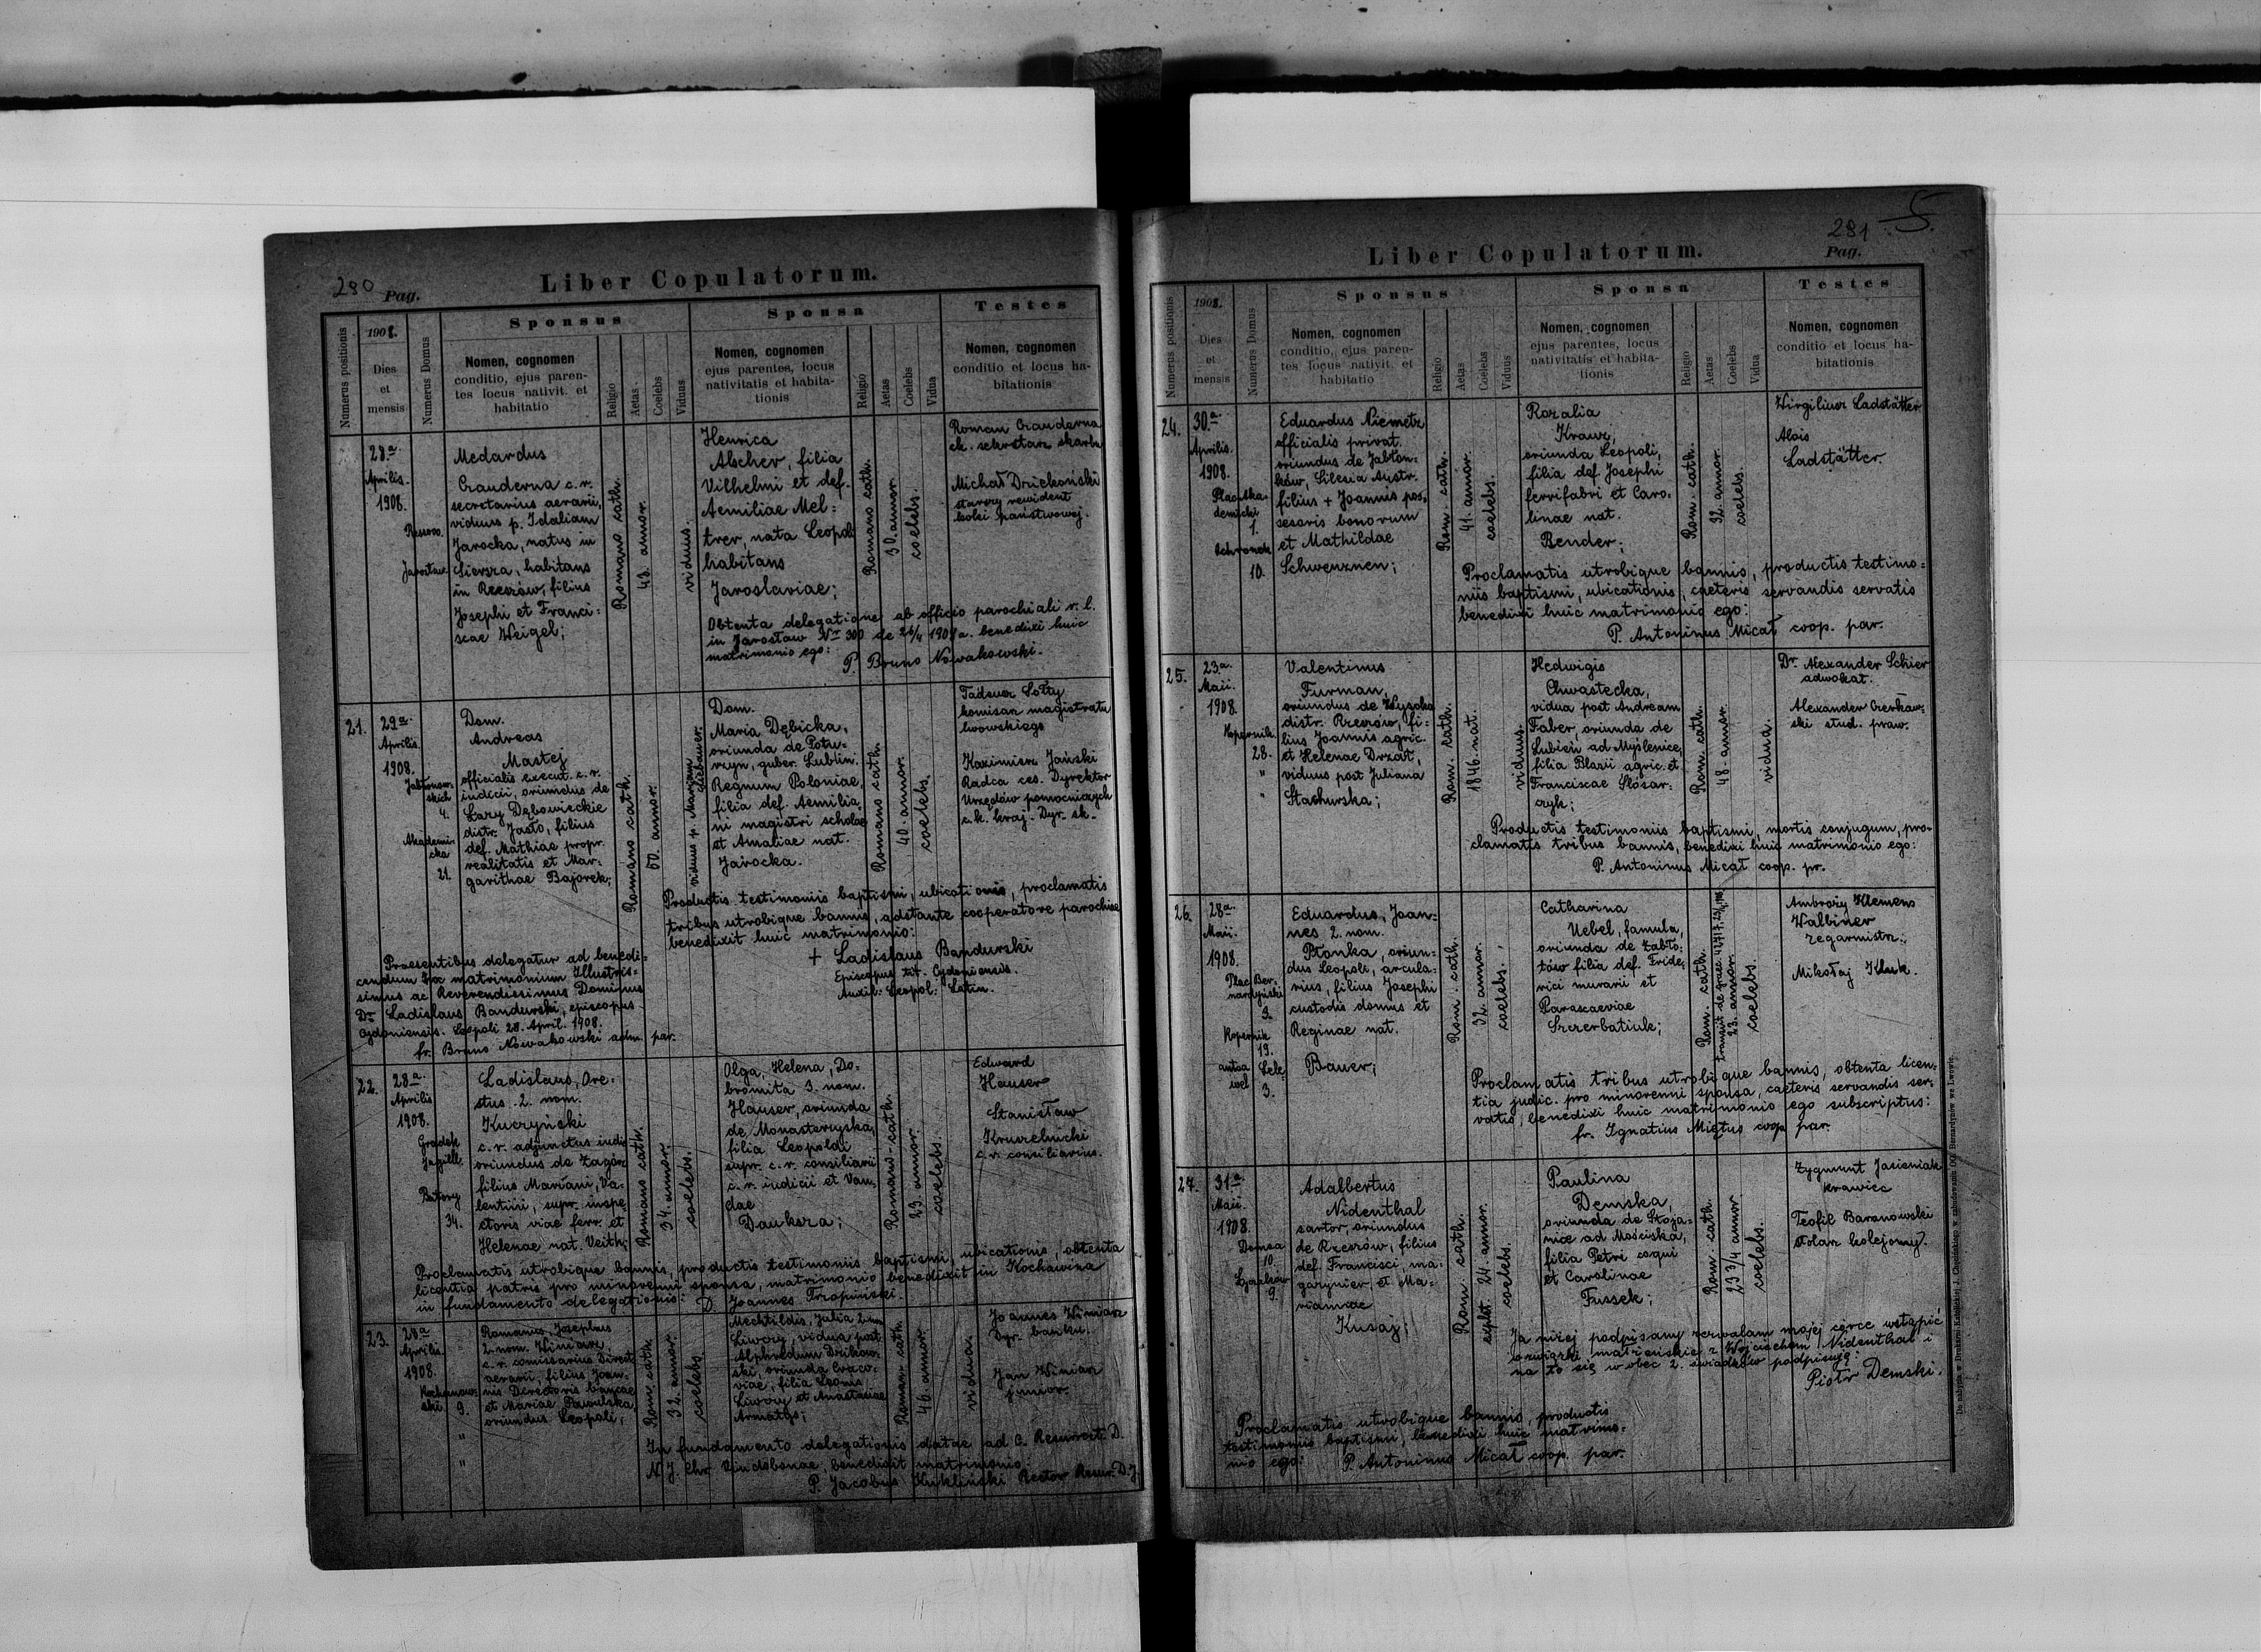 290 Pag.
Liber Copulatorum.
Numerus positionis
1908.
Dies
et
mensis
Numerus Domus
Sponsus
Nomen, cognomen
conditio, ejus paren-
tes locus nativit. et
habitatio
Religio
Aetas
Coelebs
Viduus
Sponsa
Nomen, cognomen
ejus parentes, locus
nativitatis et habita-
tionis
Religio
Aetas
Coelebs
Vidua
Testes
Nomen, cognomen
conditio et locus ha-
bitationis
28.a
Aprilis.
1908.
Jarosław.
Medardus
Czauderna c. r.
secretarius aerarii,
viduus p. Idaliam
Jarocka, natus in
Siersza, habitans
in Rzeszów, filius
Josephi et Franci=
scae Weigel;
Romano cath.
48. annor.
viduus.
Henrica
Alscher, filia
Vilhelmi et def.
Aemiliae Mel=
trer, nata Leopoli
habitans
Jaroslaviae;
Romano cath.
30. annor.
coelebs.
Roman Czauderna
ck. sekretarz skarbu
Michał Dzickoński
starszy rewident
kolei państwowej.
Obtenta delegatione ab officio parochiali r. l.
in Jarosław Nr 300 de 26/4 1908 a. benedixi huic
matrimonio ego:
P. Bruno Nowakowski.
21.
29a
Aprilis.
1908.
Jabłonow-
skich
4.
Akademi-
cka
21.
Dom.
Andreas
Mastej
officialis execut. c. r.
iudicii, oriundus de
Łazy Dębowieckie
distr. Jasło, filius
def. Mathiae propr.
realitatis et Mar=
garithae Bajorek;
Romano cath.
60. annor.
viduus p. Mariam
Dom.
Maria Dębicka,
oriunda de Potu-
rzyn, guber. Lublin.
Regnum Poloniae,
filia def. Aemilia,
ni magistri scholae
et Amaliae nat.
Jarocka.
Romano cath.
40. annor.
coelebs.
Tadeusz Sołty
komisarz magistratu
lwowskiego
Kazimierz Jański
Radca ces. Dyrektor
Urzędów pomocniczych
c. k. kraj. Dyr. sk.
Productis testimoniis baptismi, ubicationis, proclamatis
tribus utrobique bannis, adstante cooperatore parochiae
benedixit huic matrimonio:
+ Ladislaus Bandurski
Episcopus tit. Cydoniensis.
Auxil. Leopol. Latin.
Praesentibus delegatur ad benedi=
cendum hoc matrimonium Illustris=
simus ac Reverendissimus Dominus
Dr. Ladislaus Bandurski, episcopus
Cydoniensis. Leopoli 28. April. 1908.
fr. Bruno Nowakowski adm. par.
22.
28a
Aprilis
1908.
Gródek
Jagiell.
Batory
34.
Ladislaus, Ore=
stus 2. nom.
Kuczyński
c. r. adjunctus iudic.
oriundus de Zagórz
filius Mariani, Va=
lentini, supr. inspe
ctoris viae ferr. et
Helenae nat. Veith;
Romano cath.
34. annor.
coelebs.
Olga, Helena, Do=
bromita 3. nom.
Hauser, oriunda
de Monasterzyska,
filia Leopoldi
supr. c. r. consiliarii
c. r. iudicii et Van=
dae
Dauksza;
Romano-cath.
23. annor.
coelebs.
Edward
Hauser
Stanisław
Kruszelnicki
c. r. consiliarius.
Proclamatis utrobique bannis, productis testimoniis baptismi, ubicationis, obtenta
licentia patris pro minorenni sponsa, matrimonio benedixit in Kochawina
in fundamento delegationis: D. Joannes Trzopiński.
23.
28a
Aprilis.
1908.
Kochanow=
ski 9.
"
"
Romanus, Josephus
2. nom. Winiarz,
c. r. comissarius Direct.
aerarii, filius Joan=
nis Directoris bancae
et Mariae Pawulska
oriundus Leopoli;
Rom. cath.
32. annor.
coelebs.
Mechtildis, Julia 2. nom
Liwocz, vidua post
Alphredum Dzikow=
ski, oriunda Craco=
viae, filia Leonis
Liwocz et Anastasiae
Armatys;
Roman. cath.
40. annor.
vidua.
Joannes Winiarz
Dyr. banku.
Jan Winiarz
junior.
In fundamento delegationis datae ad C. Resurrect. D.
N. J. Chr. Vindobonae benedixit matrimonio:
P. Jacobus Kukliński Rector Resur. D. J.
291 5.
Pag.
Liber Copulatorum.
Numerus positionis
1908.
Dies
et
mensis
Numerus Domus
Sponsus
Nomen, cognomen
conditio, ejus paren-
tes locus nativit. et
habitatio
Religio
Aetas
Coelebs
Viduus
Sponsa
Nomen, cognomen
ejus parentes, locus
nativitatis et habita-
tionis
Religio
Aetas
Coelebs
Vidua
Testes
Nomen, cognomen
conditio et locus ha-
bitationis
24.
30.a
Aprilis.
1908.
Plac aka=
demicki
1.
Ochronek
10.
Eduardus Niemetz
officialis privat.
oriundus de Jabłon=
ków, Silesia Austr.
filius + Joannis pos=
sesoris bonorum
et Mathildae
Schwenznen;
Rom. cath.
41. annor.
coelebs.
Rozalia
Krausz,
oriunda Leopoli,
filia def. Josephi
ferrifabri et Caro=
linae nat.
Bender;
Rom. cath.
32. annor.
coelebs.
Virgiliusz Ladstätter
Alois
Ladstätter.
Proclamatis utrobique bannis, productis testimo=
niis baptismi, ubicationis, caeteris servandis servatis
benedixi huic matrimonio ego:
P. Antoninus Micał coop. par.
25.
23a.
Maii.
1908.
Kopernik.
28.
"
"
Valentinus
Furman,
oriundus de Wysoka
distr. Rzeszów, fi=
lius Joannis agric.
et Helenae Drzał,
viduus post Juliana
Stachurska;
Rom. cath.
1846. nat.
viduus.
Hedwigis
Chwastecka,
vidua post Andream
Faber, oriunda de
Lubień ad Myślenice,
filia Blasii agric. et
Franciscae Slósar=
czyk;
Rom. cath.
48. annor.
vidua.
Dr. Alexander Schier
adwokat.
Alexander Czerkaw=
ski stud. praw.
Productis testimoniis baptismi, mortis conjugum, pro=
clamatis tribus bannis, benedixi huic matrimonio ego:
P. Antoninus Micał coop. pr.
26.
28a.
Maii.
1908.
Plac Ber=
nardyński
3.
Kopernik
19.
Lele=
wel
3.
Eduardus, Joan=
nes 2. nom.
Płonka, oriun=
dus Leopoli, arcula=
rius, filius Josephi
custodis domus et
Reginae nat.
Bauer;
Rom. cath.
32. annor.
coelebs.
Catharina
Uebel, famula,
oriunda de Zabło=
tów filia def. Fride,
rici murarii et
Parascaeviae
Szczerbatiuk;
Rom. cath.
23. annor.
coelebs.
Ambroży Klemens
Walbiner
zegarmistrz.
Mikołaj Kluk.
Proclamatis tribus utrobique bannis, obtenta licen=
tia judic. pro minorenni sponsa, caeteris servandis ser=
vatis, benedixi huic matrimonio ego subscriptus:
fr. Ignatius Miętus coop. par.
27.
31a.
Maii.
1908.
Domsa
10.
Łyczków
9.
Adalbertus
Nidenthal
sartor, oriundus
de Rzeszów, filius
def. Francisci, ma=
gazynier, et Ma=
riannae
Kusaj;
Rom. cath.
explet. 24. annor.
coelebs.
Paulina
Demska,
oriunda de Stoja=
nice ad Mościska,
filia Petri coqui
et Carolinae
Fussek;
Rom. cath.
23 3/4 annor
coelebs.
Zygmunt Jasieniak
krawiec
Teofil Baranowski
stolarz kolejowy.
Ja niżej podpisany zezwalam mojej córce wstąpić
w związki małżeńskie z Wojciechem Nidenthal i
na to się w obec 2. świadków podpisuję:
Piotr Demski.
Proclamatis utrobique bannis, productis
testimoniis baptismi, benedixi huic matrimo=
nio ego: P. Antoninus Micał coop. par.
Do nabycia w Drukarni Katolickiej J. Chęcińskiego w zabudowaniu OO. Bernardynów we Lwowie.